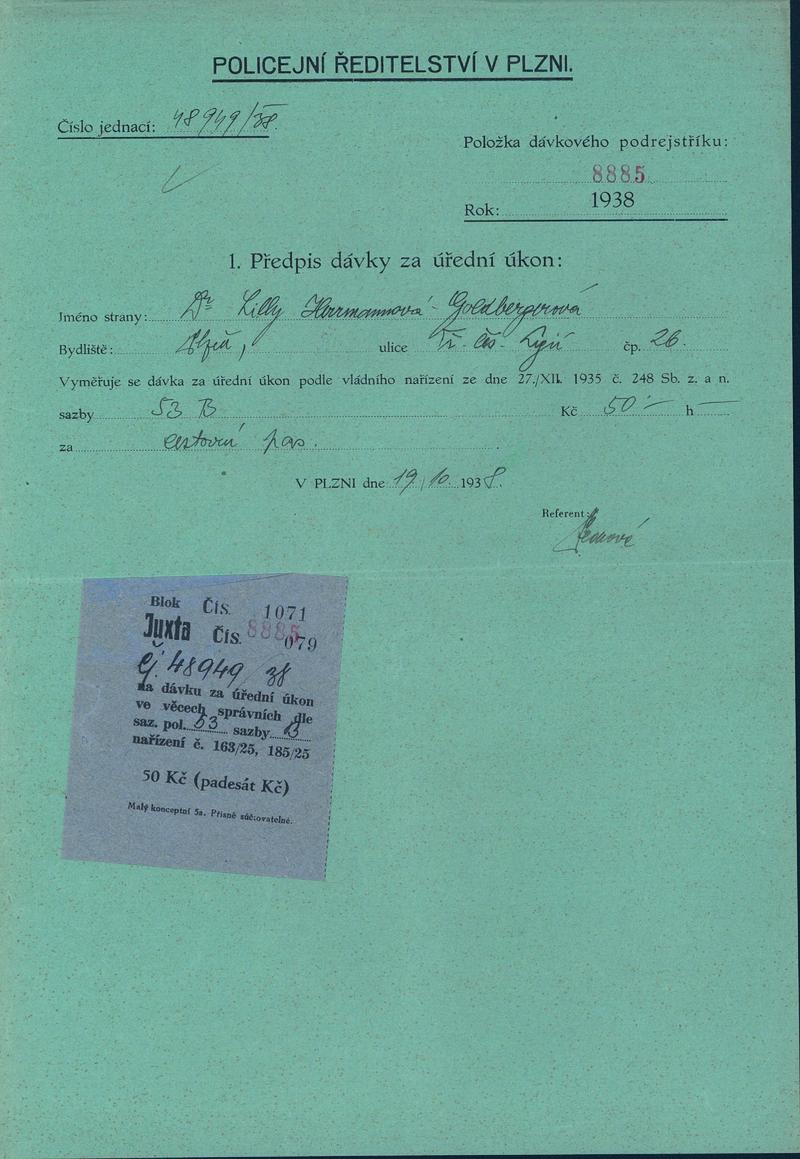 POLICEJNÍ ŘEDITELSTVÍ V PLZNI.
Číslo jednací: 48949/38.
Položka dávkového podrejstříku:
8885
Rok: 1938
1. Předpis dávky za úřední úkon:
Jméno strany: Dr Lilly Herrmannová-Goldbergerová
Bydliště: Plzeň, ulice Tř. čs. Legií čp. 26.
Vyměřuje se dávka za úřední úkon podle vládního nařízení ze dne 27./XII. 1935 č. 248 Sb. z. a n.
sazby 53 B Kč 50·— h —
za cestovní pas.
V PLZNI dne 19/10. 1938.
Referent:
Blok Čís. 1071
Juxta Čís. 8885 079
čj. 48949/38
na dávku za úřední úkon
ve věcech správních dle
saz. pol. 53 sazby B
nařízení č. 163/25, 185/25
50 Kč (padesát Kč)
Malý konceptní 5a. Přísně súčtovatelné.